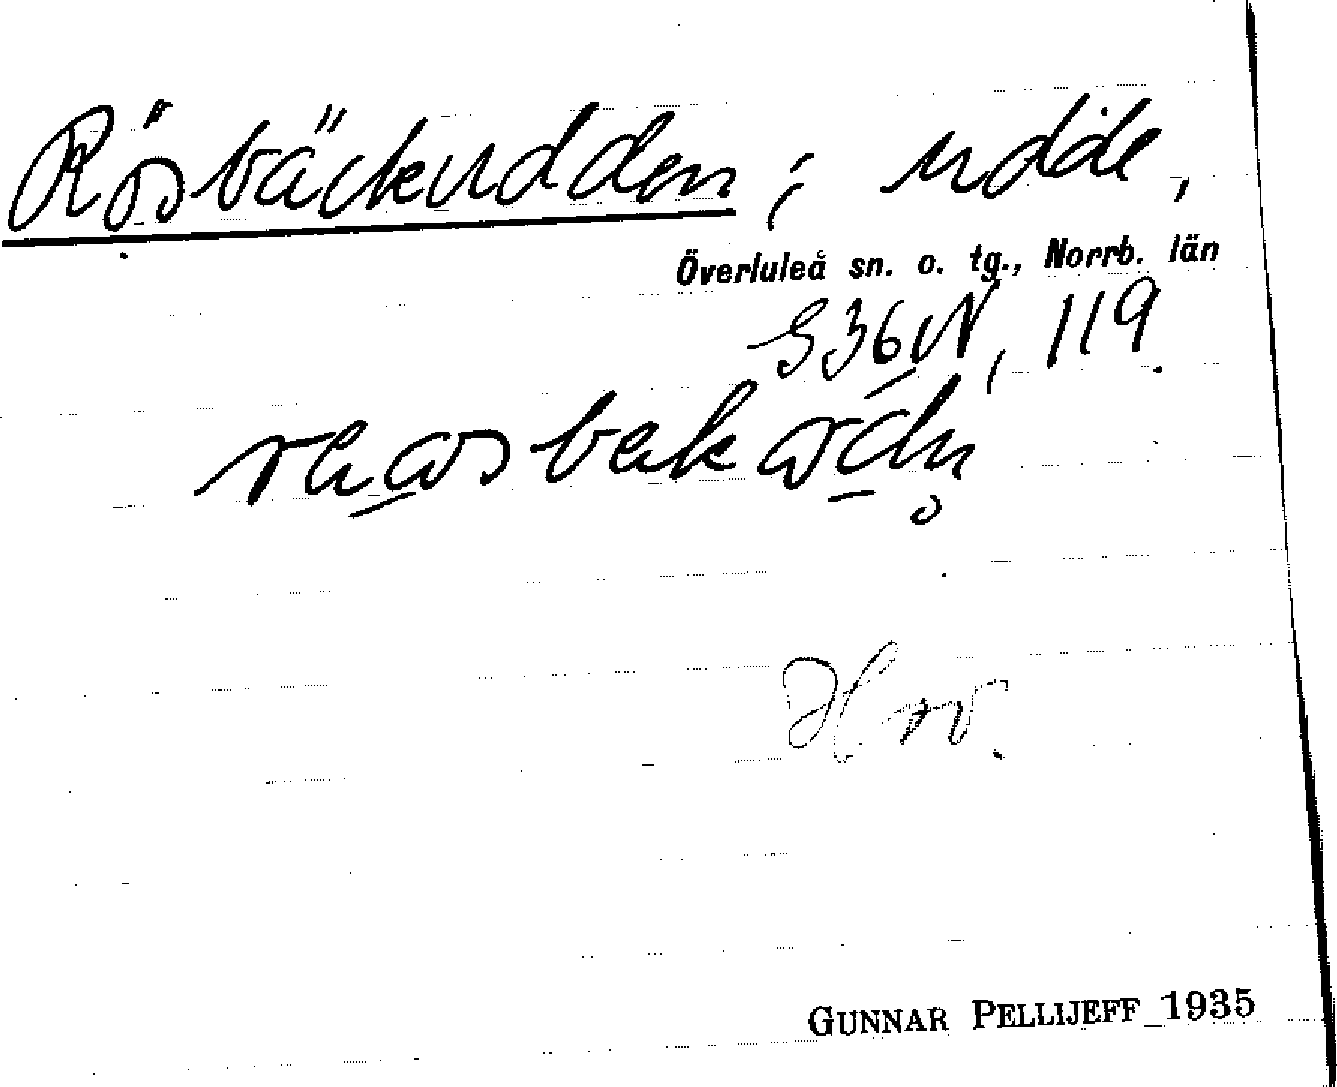 Rösbäckudden ; udde,
Överluleå sn. o. tg., Norrb. län
S36N, 119.
GUNNAR PELLIJEFF 1935